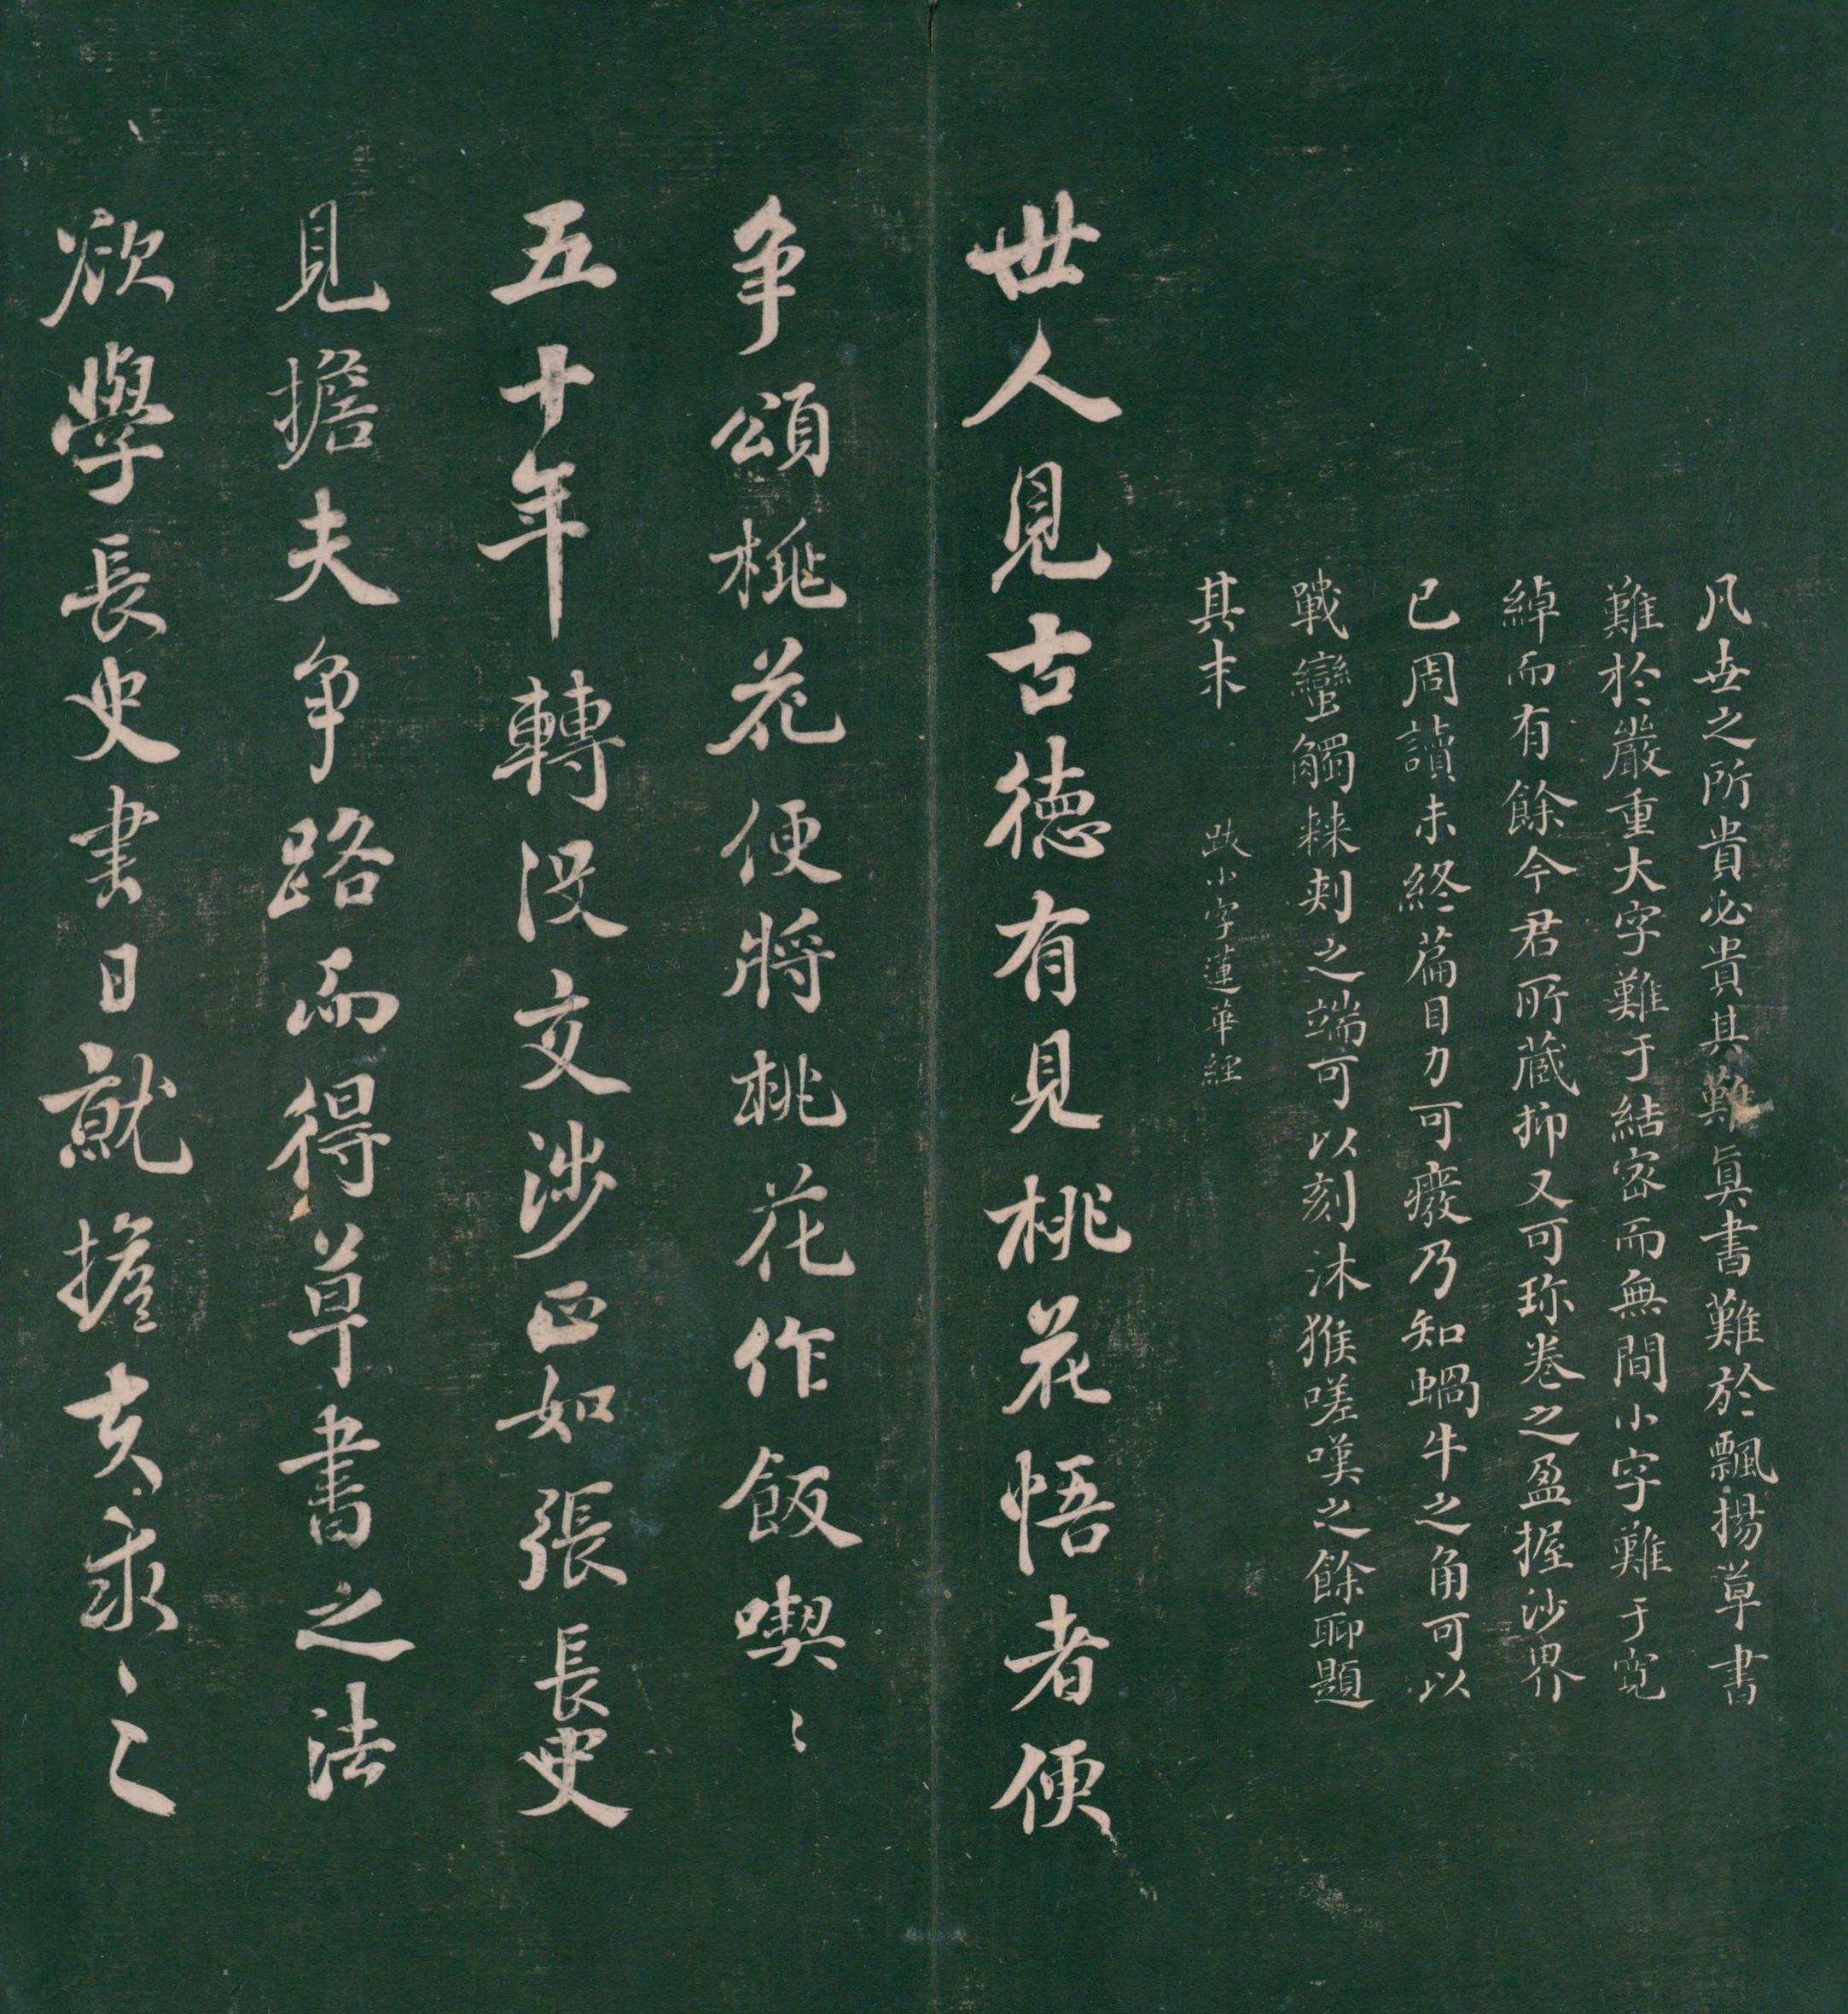 凡世之所貴必貴其難眞書難於飄揚草書
難於嚴重大字難于結密而無間小字難于寬
綽而有餘今君所藏抑又可珎卷之盈握沙界
已周讀未終篇目力可廢乃知蝸牛之角可以
戰蠻觸棘刺之端可以刻沐猴嗟嘆之餘聊題
其末 跋小字蓮華經
世人見古德有見桃花悟者便
争頌桃花便將桃花作飯喫〻
五十年轉没交涉正如張長史
見擔夫争路而得草書之法
欲學長史書日就擔夫求之